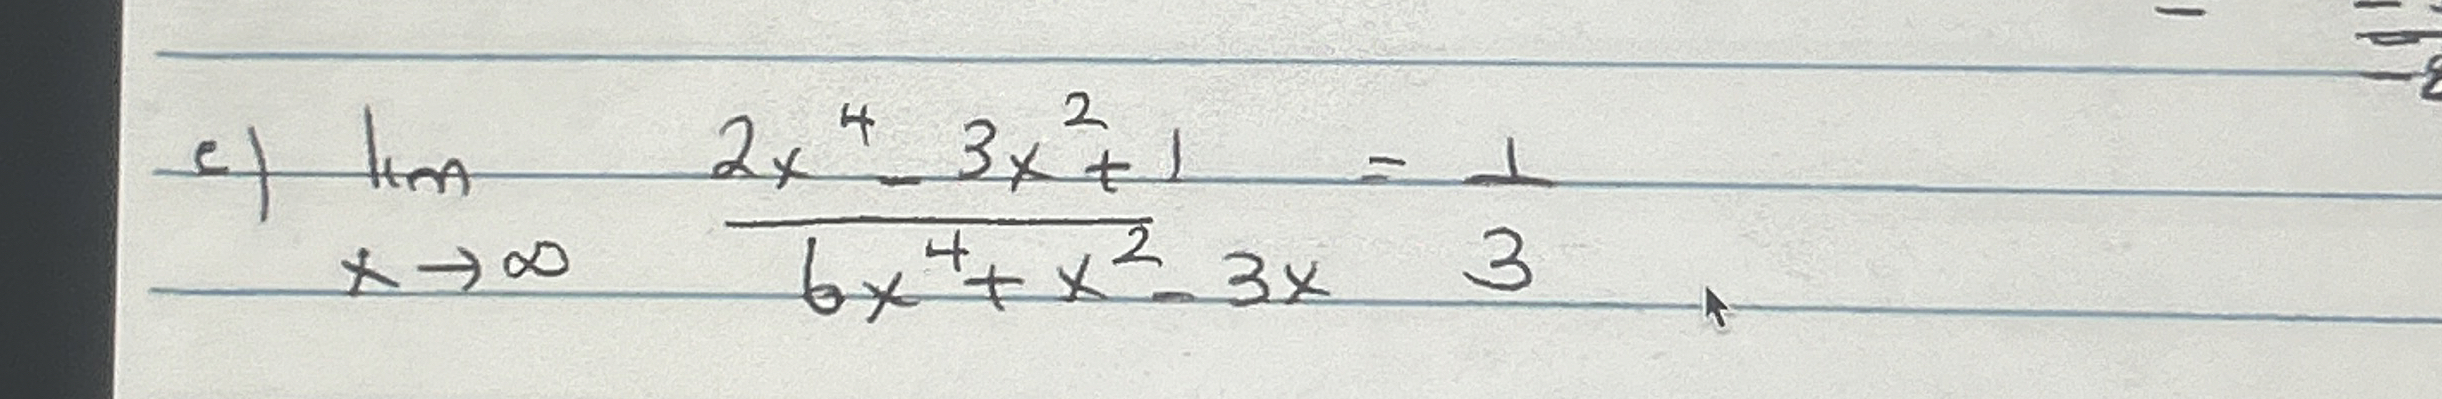 c) lim 2x⁴ - 3x² + 1 = 1
x → ∞ 6x⁴ + x² - 3x 3